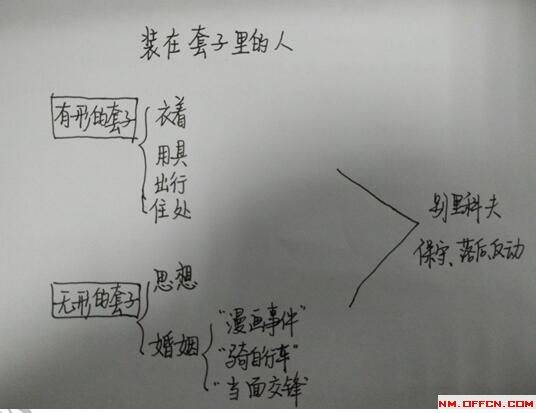 装在套子里的人
有形的套子
衣着
用具
出行
住处
无形的套子
思想
婚姻
"漫画事件"
"骑自行车"
"当面交锋"
别里科夫
保守、落后、反动
NM.OFFCN.COM